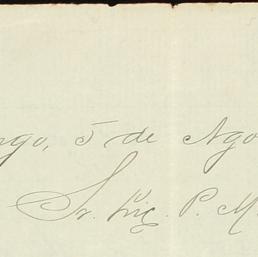 ngo, 5 de Ago
Sr. Lic. P. M